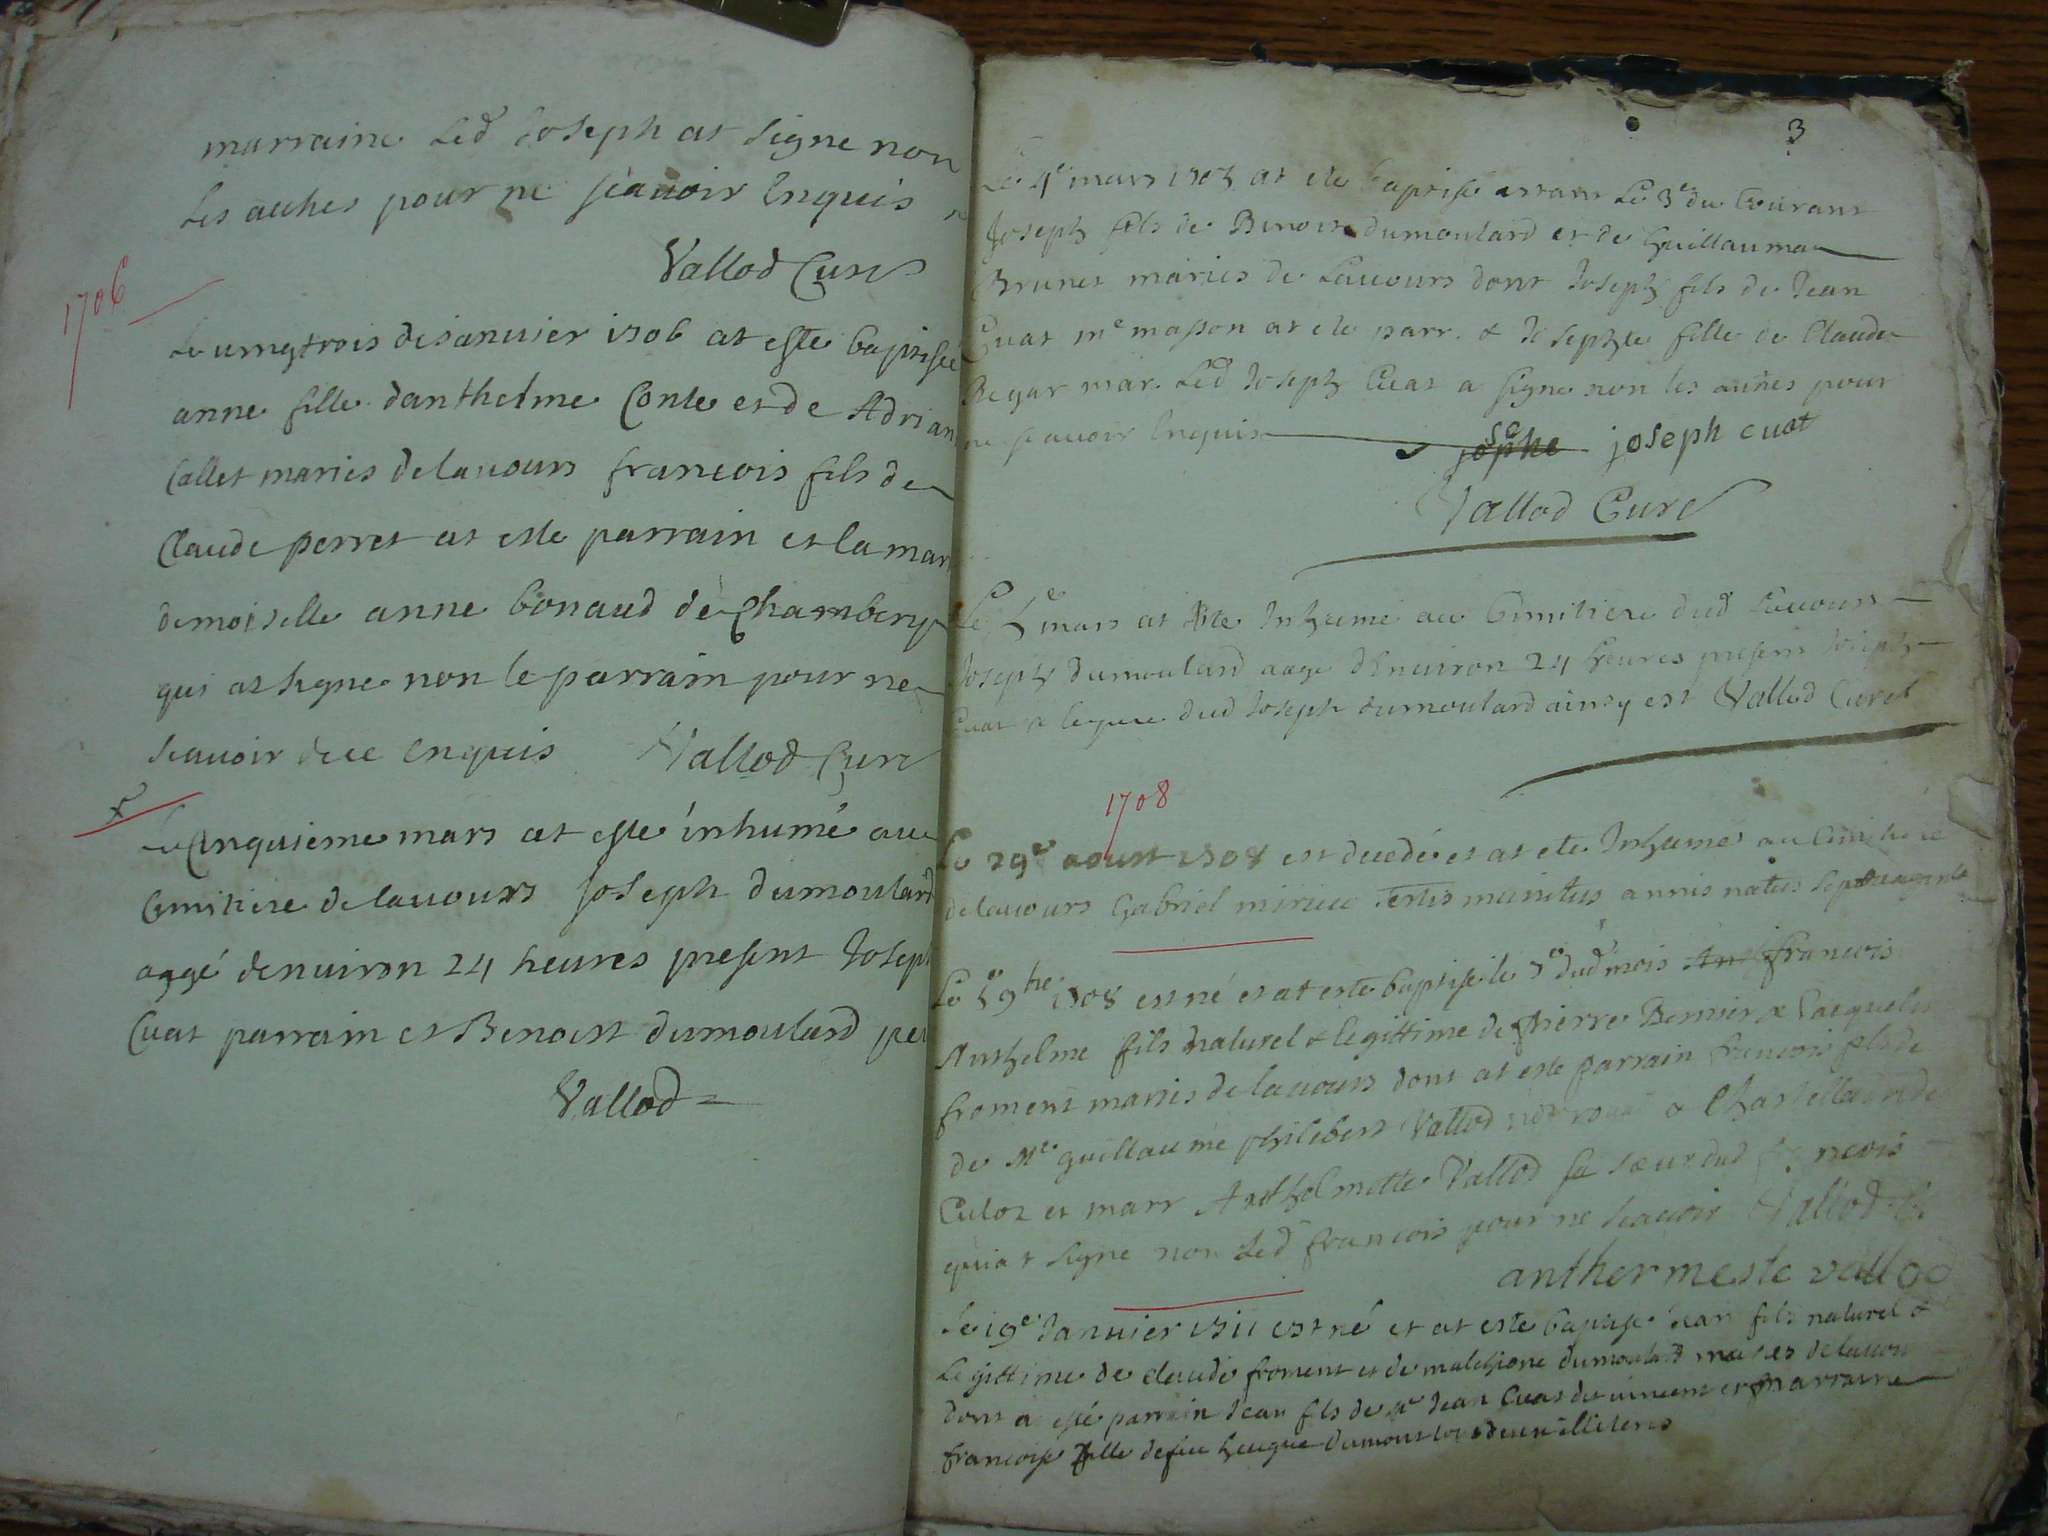 marraine Led Joseph at signe non
Les autres pour ne scavoir Enquis
Vallod Cure
1706
Le vingtrois de janvier 1706 at este baptisée
anne fille danthelme Conte et de Adrian
Callet maries de lavours francois fils de
Claude perret at este parrain et la mar
demoiselle anne bonaud de Chambery
qui at signe non le parrain pour ne
scavoir de ce enquis Vallod Cure
Le Cinquieme mars at este inhumé au
Cimitiere de lavours Joseph dumoulard
aagé denuiron 24 heures present Joseph
Cuat parrain et Benoist dumoulard per
Vallod
3
Le 4e mars at ete baptise le 3e du Courant
Joseph fils de Benoist dumoulard et de Guillauma
Brunet maries de Lavours dont Joseph fils de Jean
Cuat me masson at ete parr. & Josephte fille de Claude
mar. Led Joseph Cuat a signe non les autres pour
ne scavoir Enquis jophe joseph cuat
Vallod Cure
Le 5e mars at ete Inhumé au Cimitiere dud Lavours
Joseph dumoulard aage denuiron 24 heures present Joseph
Cuat & le pere dud Joseph dumoulard ainsy est Vallod Cure
1708
Le 29e aoust 1708 est decedé et at ete Inhumé au Cimitiere
de lavours Gabriel munitus annis natus septuaginta
Le 5 9bre 1708 est né et at este baptise le 7e dud mois francois
Anthelme fils naturel & legittime de pierre Bernier & Jacqueline
froment maries de lavours dont at este parrain francois fils de
de Me guillaume philibert Vallod & Chastellain de
Culoz et marr Anthelmette Vallod sa sœur dud francois
qui at signe non Led francois pour ne scavoir Vallod
anthermeste vallod
Le 19e Janvier 1711 est né et at este baptisé Jean fils naturel &
Legittime de claude froment et de dumoulard maries de lavours
dont a esté parrain Jean fils de Me Jean Cuat et marraine
francoise fille de feu dumoulard illiteres